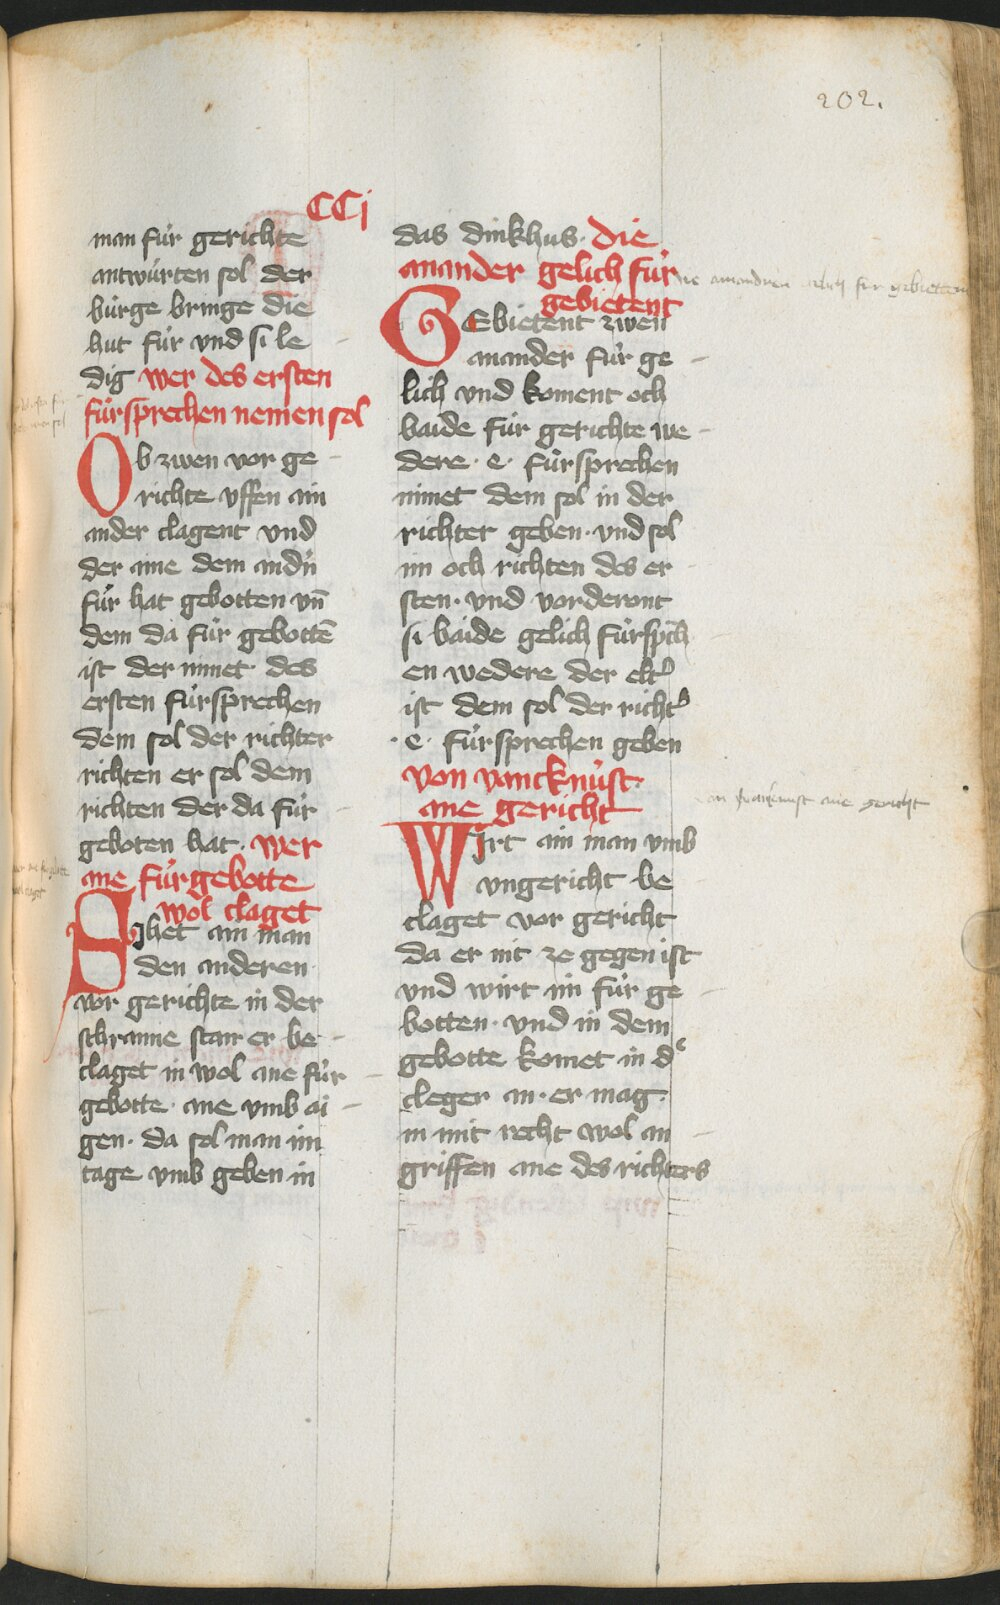 202.
CCj
man fúr gerichte
antwúrten sol der
búrge bringe die
hut fúr vnd si le
dig wer des ersten
fúrsprechen nemen sol
Ob zwen vor ge
richte vffen ain
ander clagent vnd
der aine dem andn̄
fúr hat gebotten vn̄
dem da fúr gebottē
ist der nimet des
ersten fúrsprechen
dem sol der richter
richten er sol dem
richten der da fúr
geboten hat. wer
ane fúrgebotte
wol claget
Sihet ain man
den anderen
vor gerichte in der
schranne stan er be
claget in wol ane fúr
gebotte. ane vmb ai
gen. da sol man im
tage vmb geben in
das dinkhus. die
anander gelich fúr
gebietent
GEbietent zwen
ananander fúr ge
lich vnd koment och
baide fúr gerichte we
dere. e. fúrsprechen
nimet dem sol in der
richter geben. vnd sol
im och richten des er
sten. vnd vorderont
si baide gelich fúrspch
en wedere der elt'
ist dem sol der richt'
.e. fúrsprechen geben
von vancknúst.
ane gericht
WJrt ain man vmb
vngericht be
claget vor gericht
da er nit ze gegen ist
vnd wirt im fúr ge
botten. vnd in dem
gebotte komet in dͤ
cleger an. er mag.
in mit recht wol an
griffen ane des richters